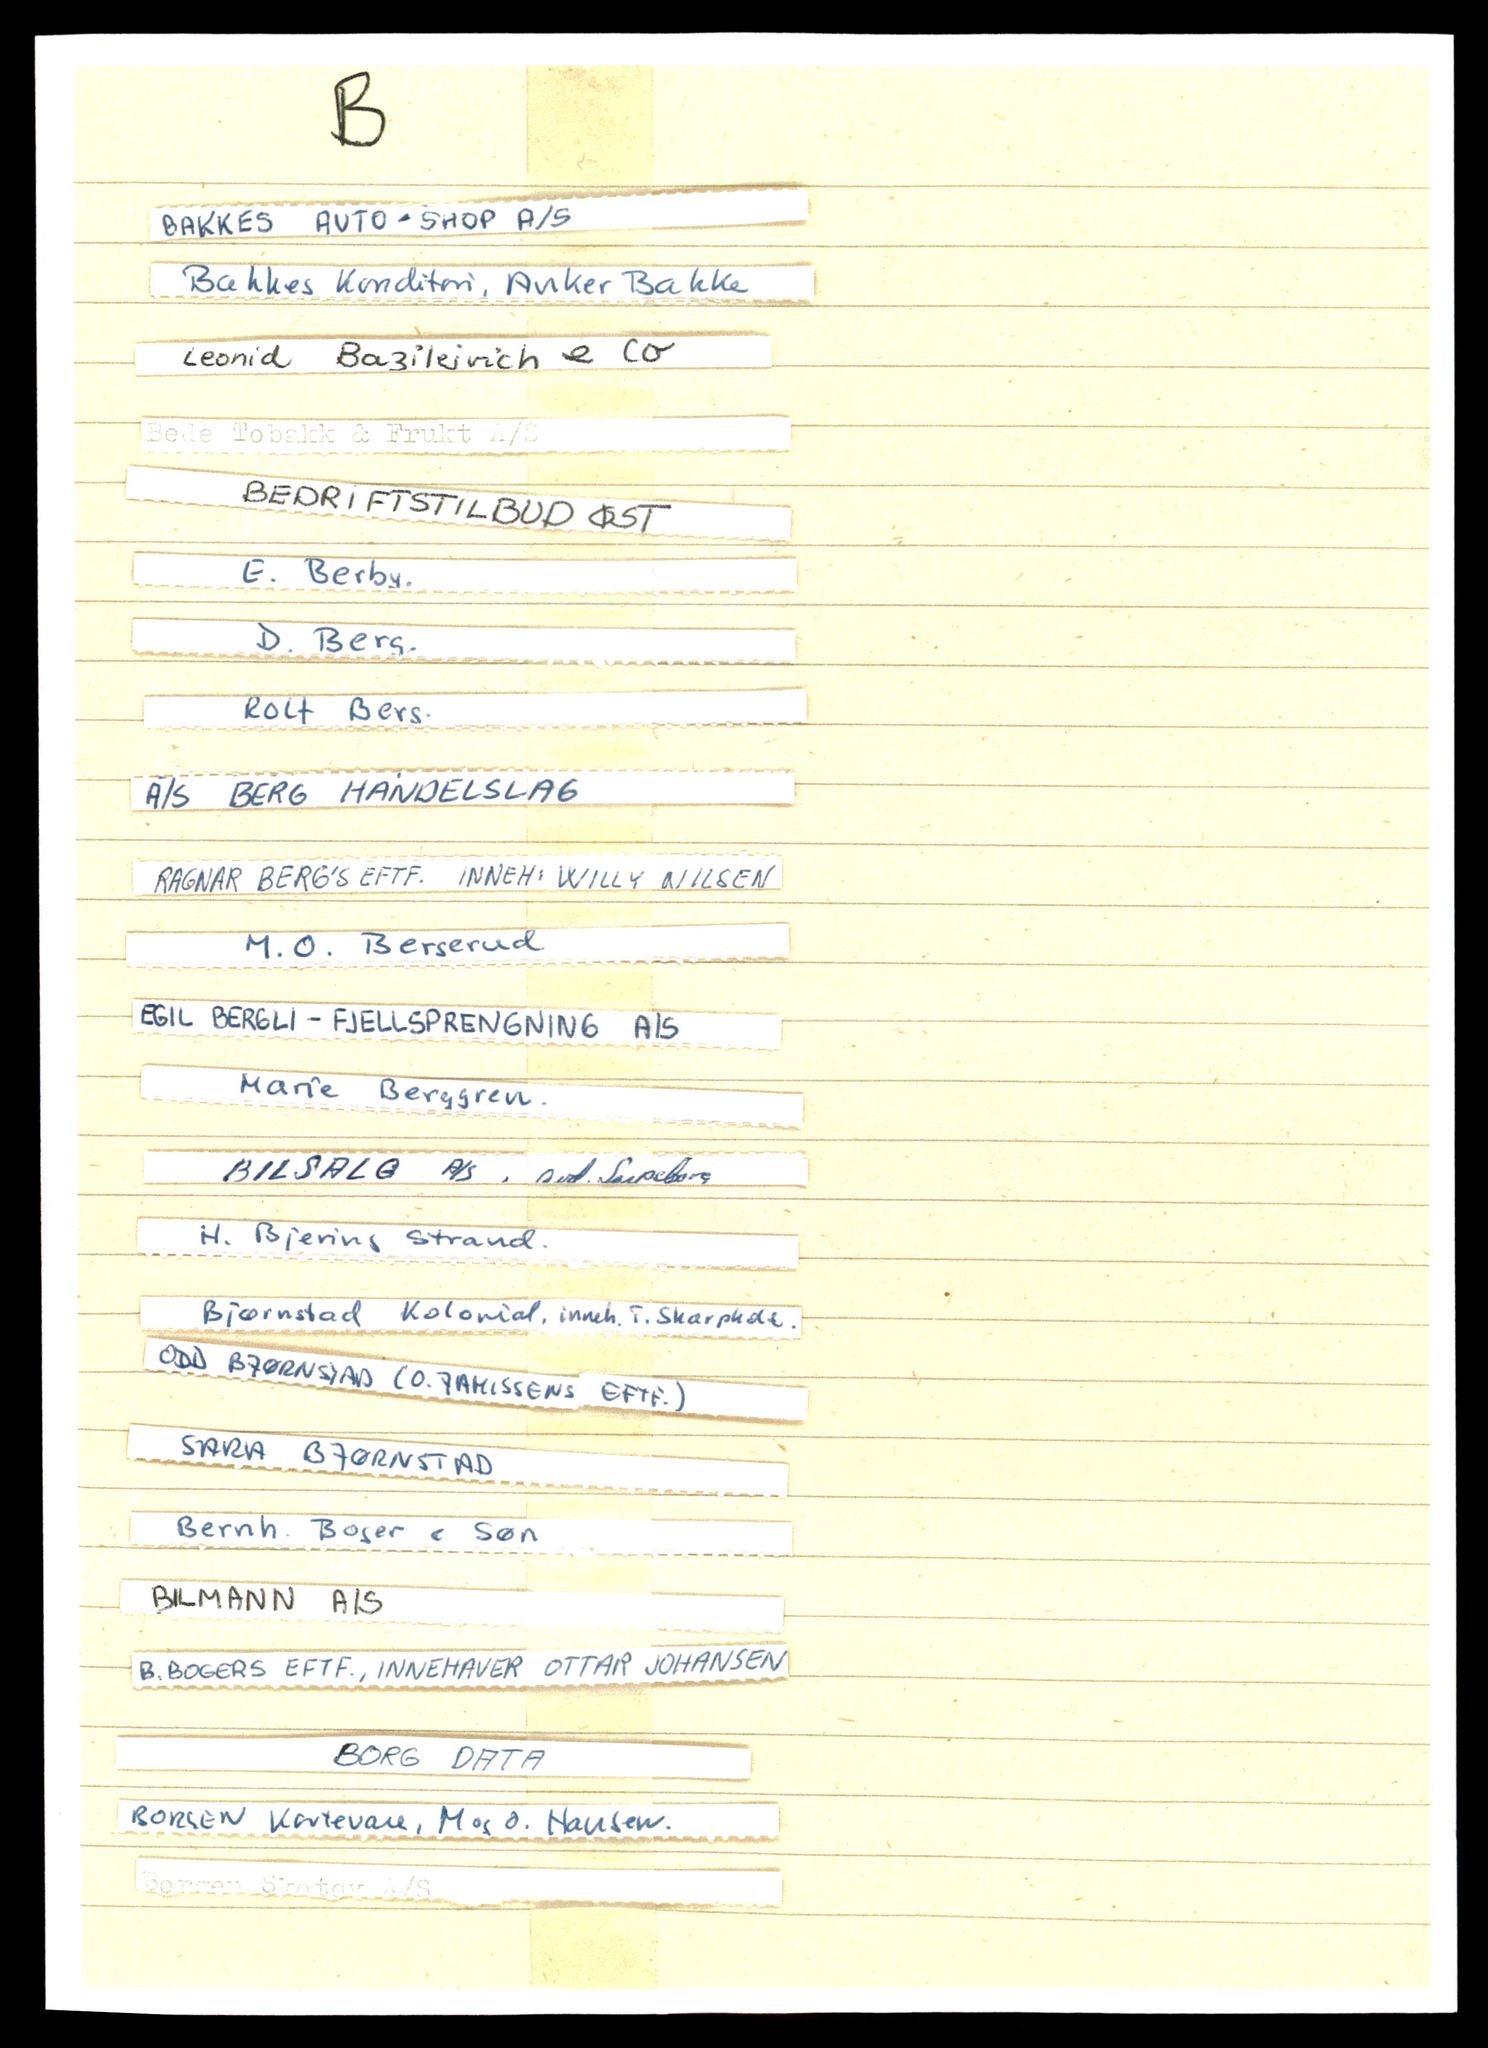 B
BAKKES AUTO-SHOP A/S
Bakkes Konditori, Anker Bakke
Leonid Bazilejvich & Co
Bede Tobakk & Frukt A/S
BEDRIFTSTILBUD ØST
E. Berby.
D. Berg.
Rolf Berg.
A/S BERG HANDELSLAG
RAGNAR BERG'S EFTF. INNEH: WILLY NILSEN
M.O. Bergerud
EGIL BERGLI - FJELLSPRENGNING A/S
Marie Berggren.
BILSALG A/S, avd. Sarpsborg
H. Bjering Strand.
Bjørnstad Kolonial, inneh. T.
ODD BJØRNSTAD (O. EFTF.)
SARA BJØRNSTAD
Bernh. Boger & Søn
BILMANN A/S
B. BOGERS EFTF., INNEHAVER OTTAR JOHANSEN
BORG DATA
BORGEN Kortevare, M og O. Hansen.
Borgen Skotøy A/S